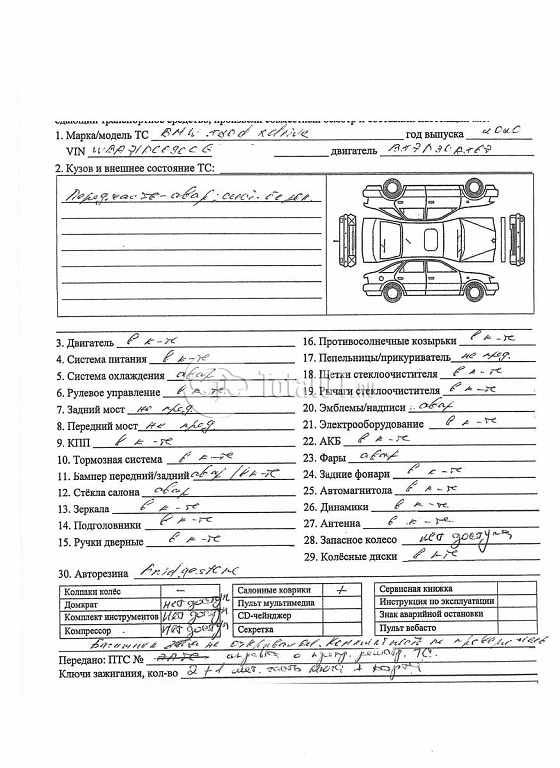 1. Марка/модель ТС BMW xdrive год выпуска
VIN двигатель
2. Кузов и внешнее состояние ТС:
3. Двигатель в к-те
4. Система питания в к-те
5. Система охлаждения авар
6. Рулевое управление в к-те
7. Задний мост не пред.
8. Передний мост не пред.
9. КПП в к-те
10. Тормозная система в к-те
11. Бампер передний/задний авар / в к-те
12. Стёкла салона авар
13. Зеркала в к-те
14. Подголовники в к-те
15. Ручки дверные в к-те
16. Противосолнечные козырьки в к-те
17. Пепельницы/прикуриватель не пред.
18. Щетки стеклоочистителя в к-те
19. Рычаги стеклоочистителя в к-те
20. Эмблемы/надписи авар
21. Электрооборудование в к-те
22. АКБ в к-те
23. Фары авар
24. Задние фонари в к-те
25. Автомагнитола в к-те
26. Динамики в к-те
27. Антенна в к-те
28. Запасное колесо нет доступа
29. Колёсные диски в к-те
30. Авторезина Bridgestone
Колпаки колёс – Салонные коврики + Сервисная книжка
Домкрат нет доступ Пульт мультимедиа Инструкция по эксплуатации
Комплект инструментов нет доступ CD-чейнджер Знак аварийной остановки
Компрессор нет доступ Секретка Пульт вебасто
Багажник не открывался. Комплектность не проверялась
Передано: ПТС № ТС.
Ключи зажигания, кол-во 2 +1 мет. часть ключа + карта